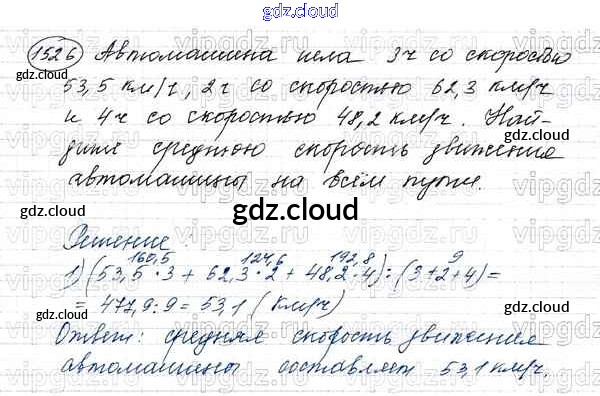 gdz.cloud
1526 Автомашина шла 3ч со скоростью
53,5 км/ч, 2ч со скоростью 62,3 км/ч
и 4ч со скоростью 48,2 км/ч. Най-
дите среднюю скорость движения
автомашины на всём пути.
gdz.cloud
Решение:
160,5 124,6 192,8 9
1) (53,5·3 + 62,3·2 + 48,2·4) : (3+2+4) =
= 477,9:9 = 53,1 (км/ч)
Ответ: средняя скорость движения
автомашины составляет 53,1 км/ч.